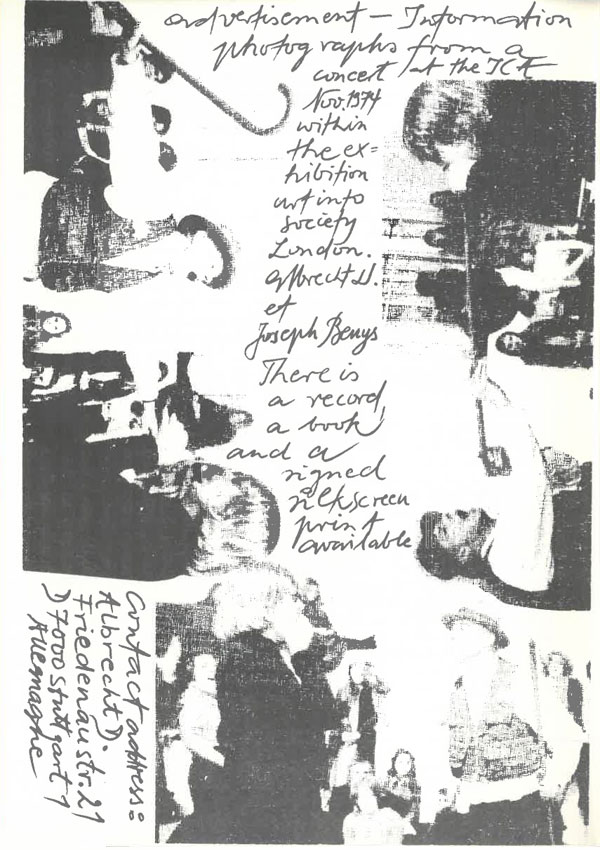 advertisement — Information
photographs from a
concert / at the ICA
Nov. 1974
within
the ex=
hibition
art into
society
London.
Albrecht D.
et
Joseph Beuys
There is
a record,
a book
and a
signed
silkscreen
print
available
Contact address:
Albrecht D.
Friedenaustr. 21
D 7000 Stuttgart 1
Allemagne